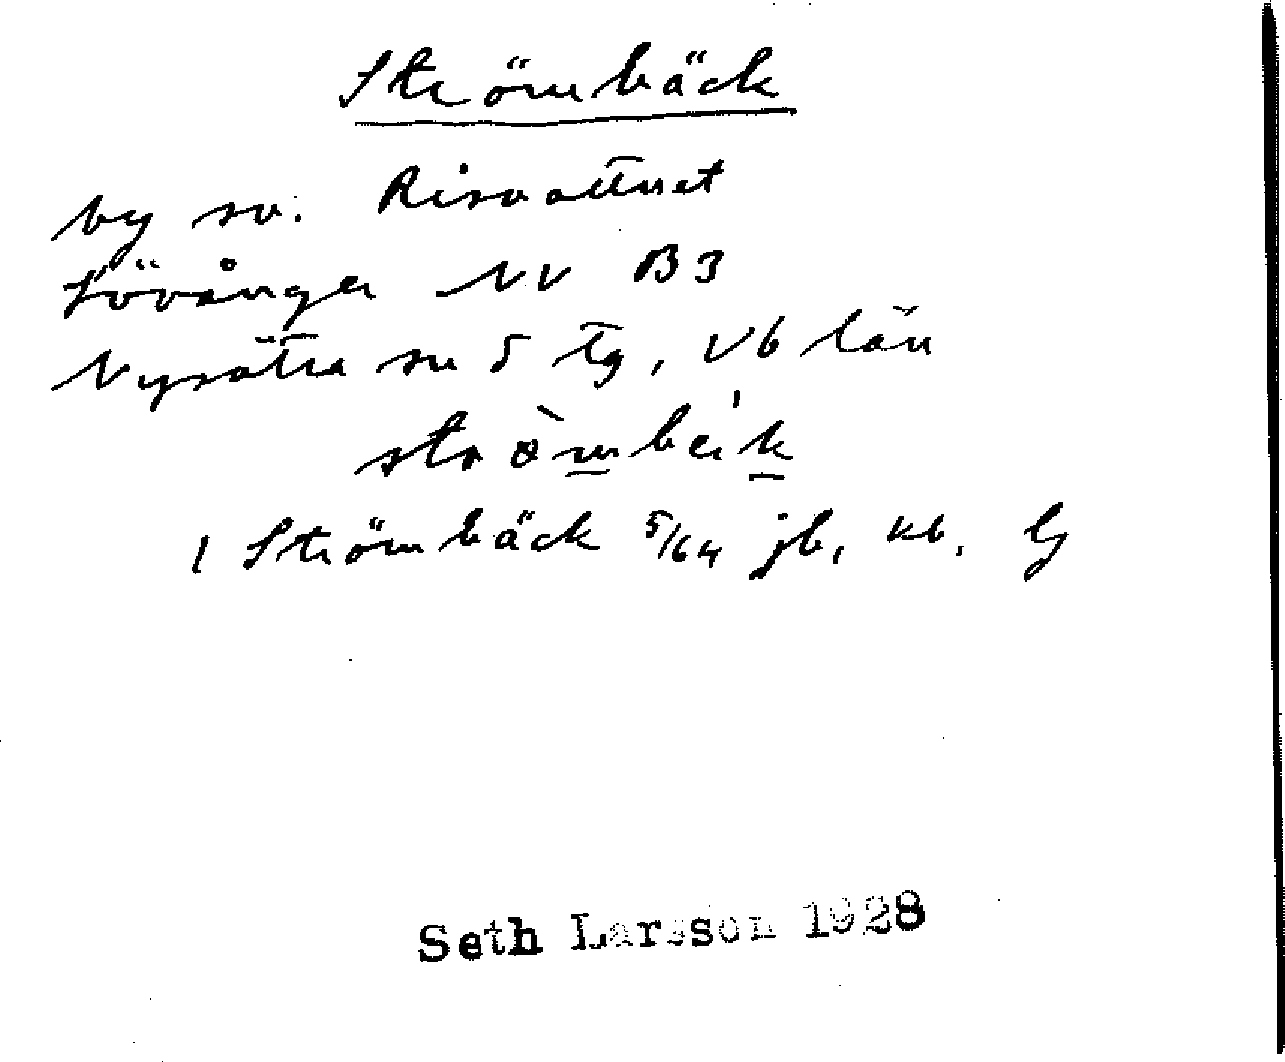 Strömbäck
by sv. Risvattnet
Lövånger NV B3
Nysätra sn 5 tg, Vb län
1 Strömbäck 5/64 jb, kb,
Seth Larsson 1928